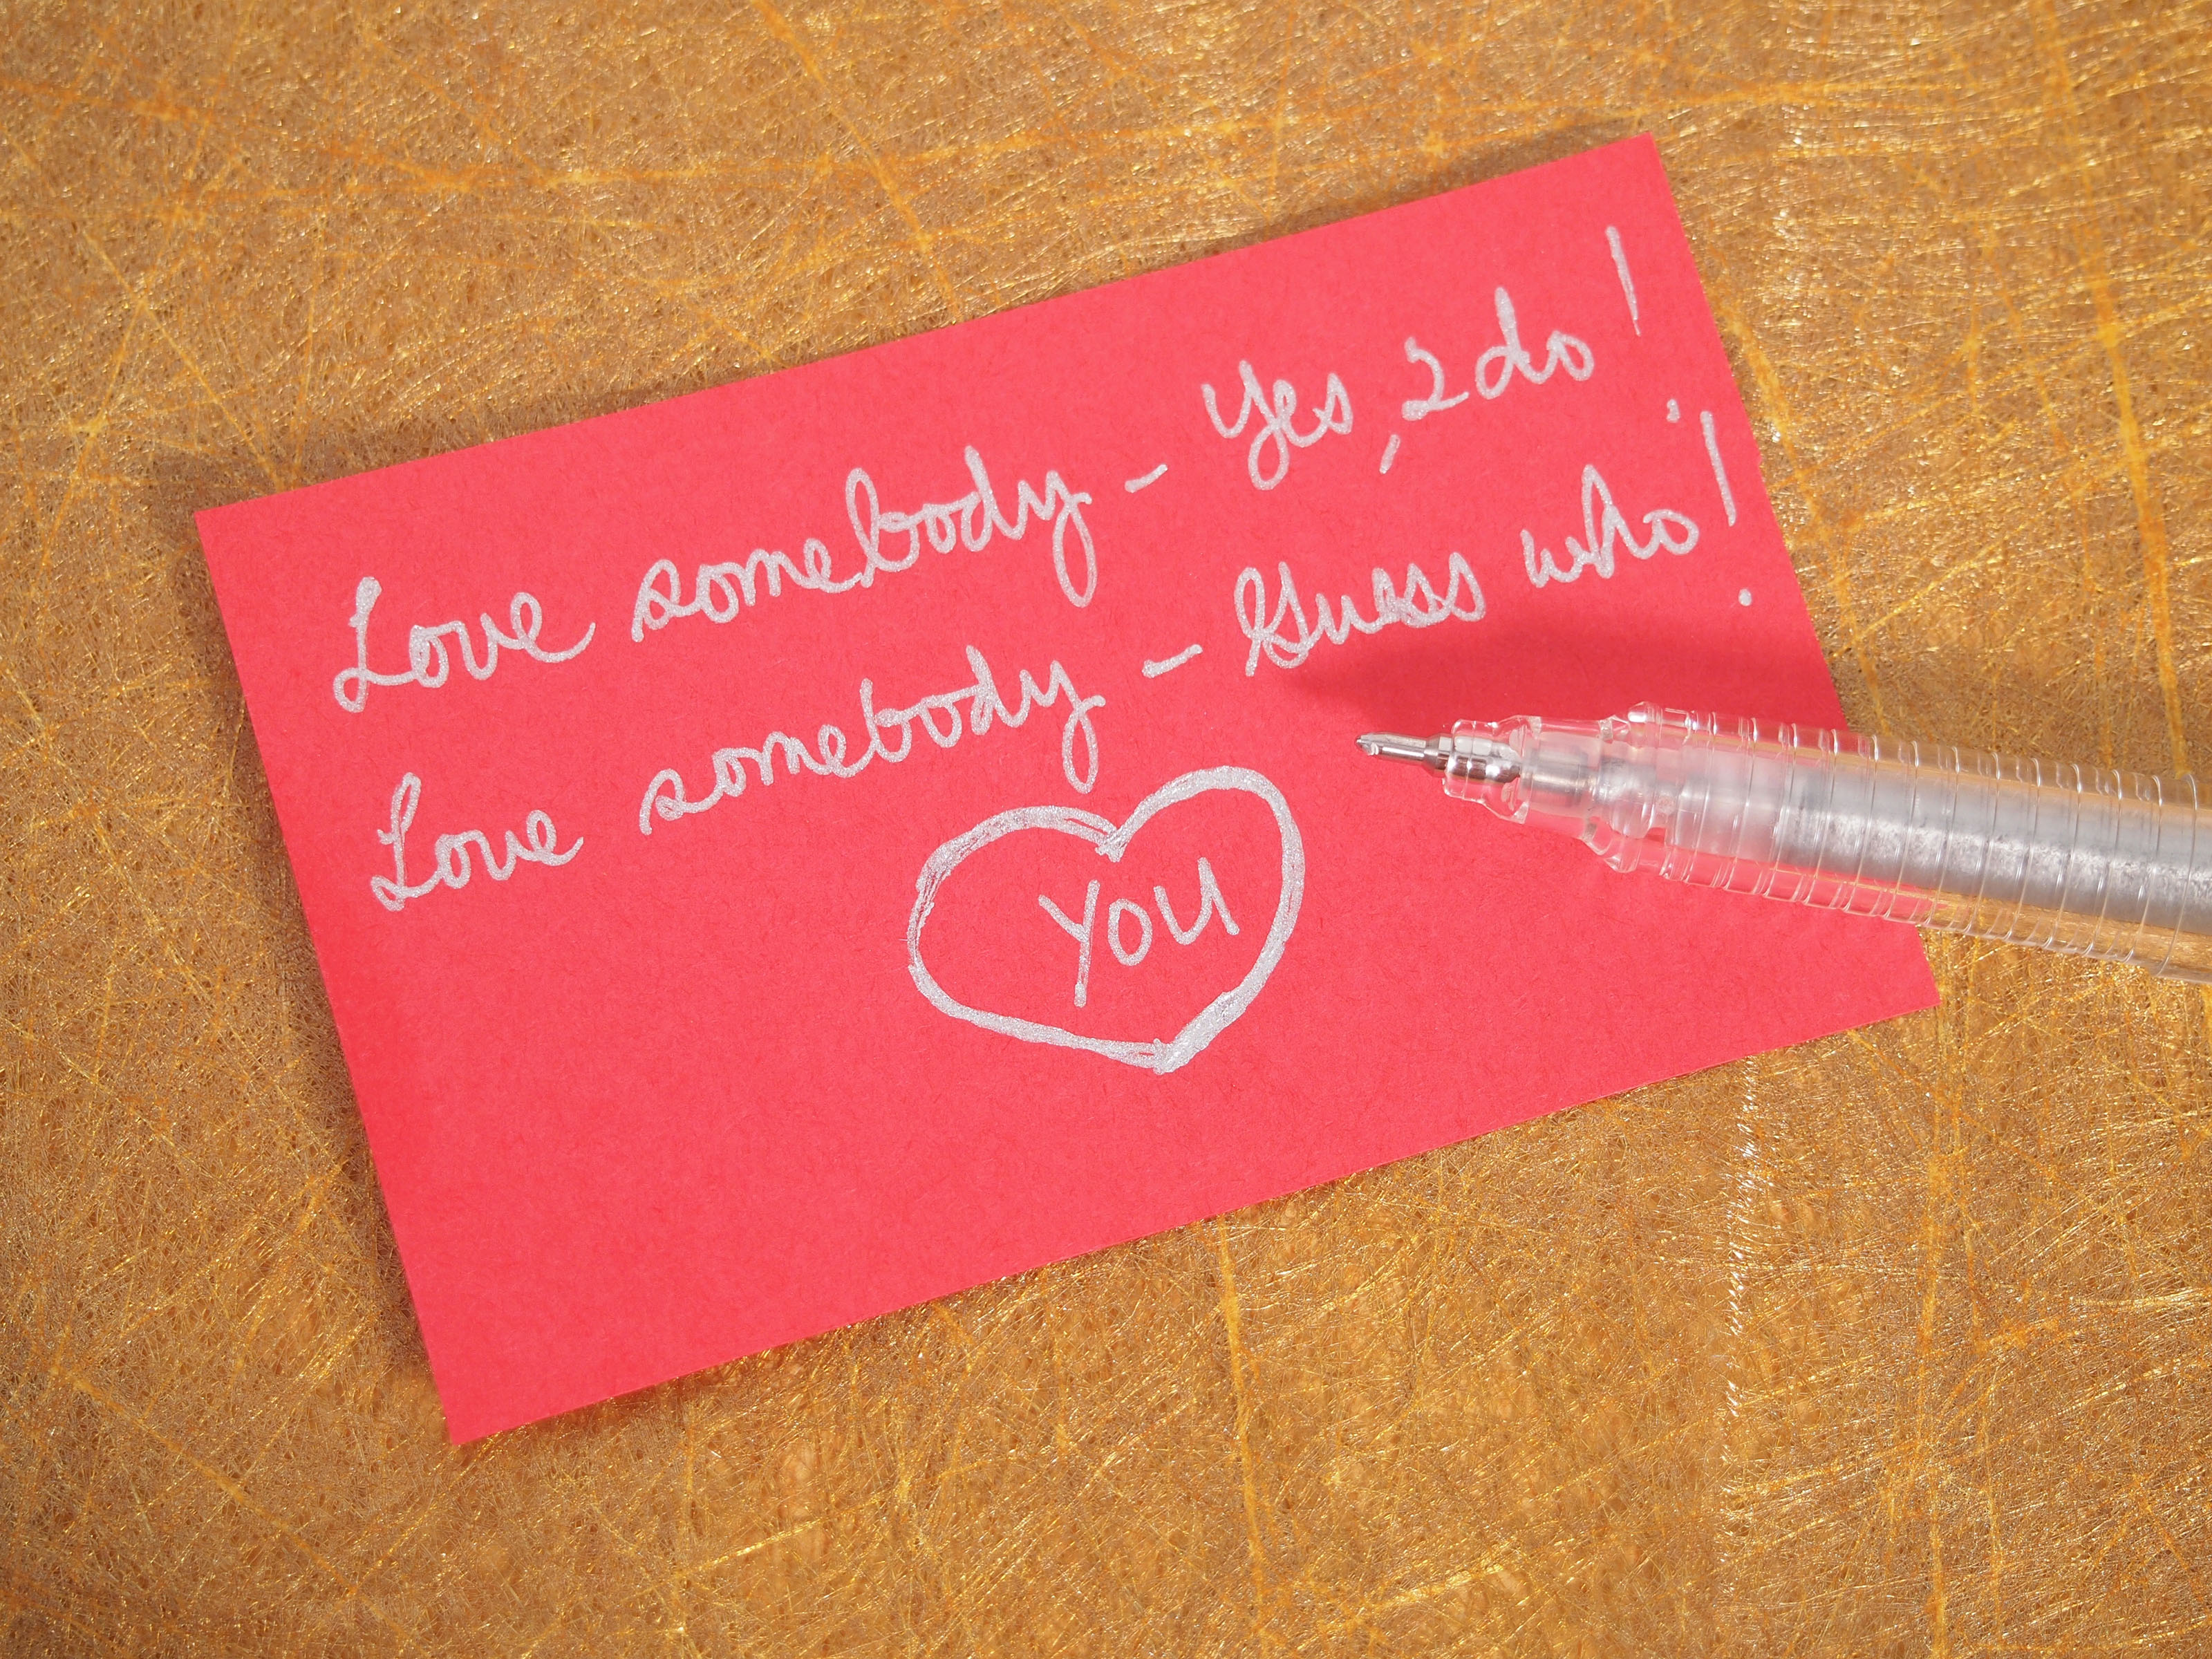 Love somebody - Yes, I do!
Love somebody - Guess who!
YOU